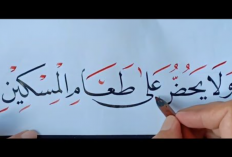 وَلَا يَحُضُّ عَلَىٰ طَعَامِ الْمِسْكِينِ